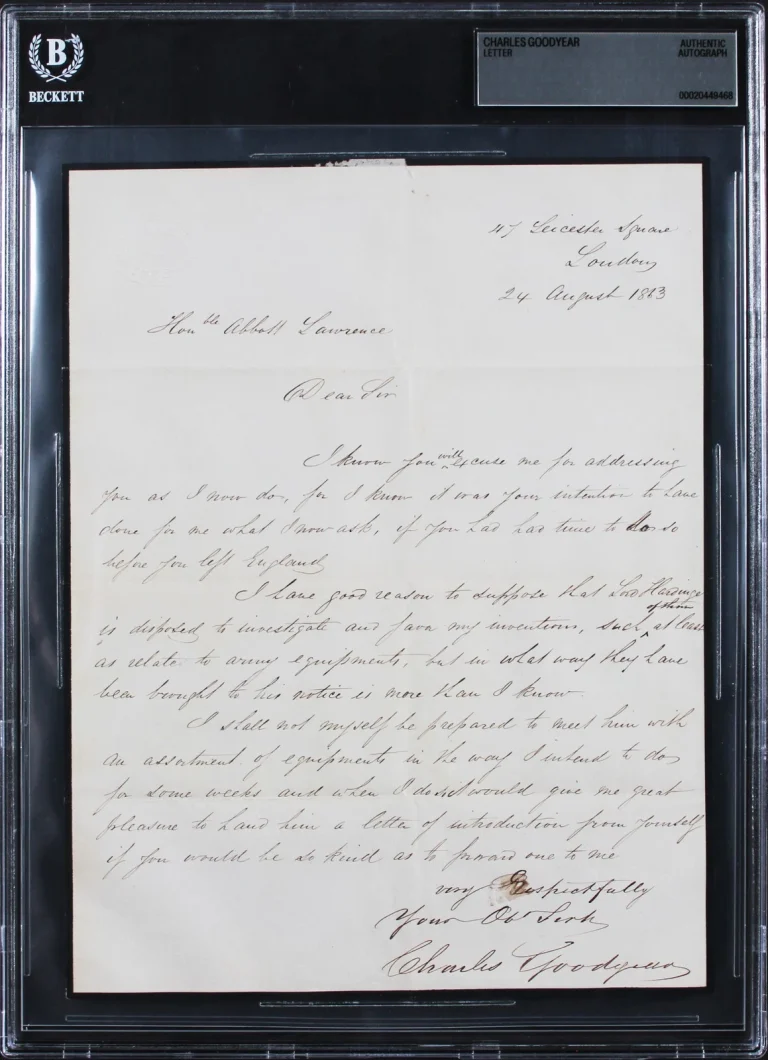 B
BECKETT
CHARLES GOODYEAR
LETTER
AUTHENTIC
AUTOGRAPH
00020449468
47 Leicester Square
London
24 August 1853
Honble Abbott Lawrence
Dear Sir
I know you will excuse me for addressing
you as I now do, for I know it was your intention to have
done for me what I now ask, if you had had time to do so
before you left England
I have good reason to suppose that Lord Hardinge
is disposed to investigate and favor my inventions, such of them at least
as relate to army equipments, but in what way they have
been brought to his notice is more than I know
I shall not myself be prepared to meet him with
an assortment of equipments in the way I intend to do
for some weeks and when I do it would give me great
pleasure to hand him a letter of introduction from yourself
if you would be so kind as to forward one to me
very Respectfully
Your Obt Servt
Charles Goodyear